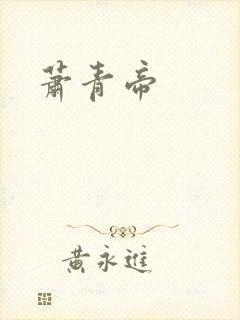 蕭青帝
黃永進